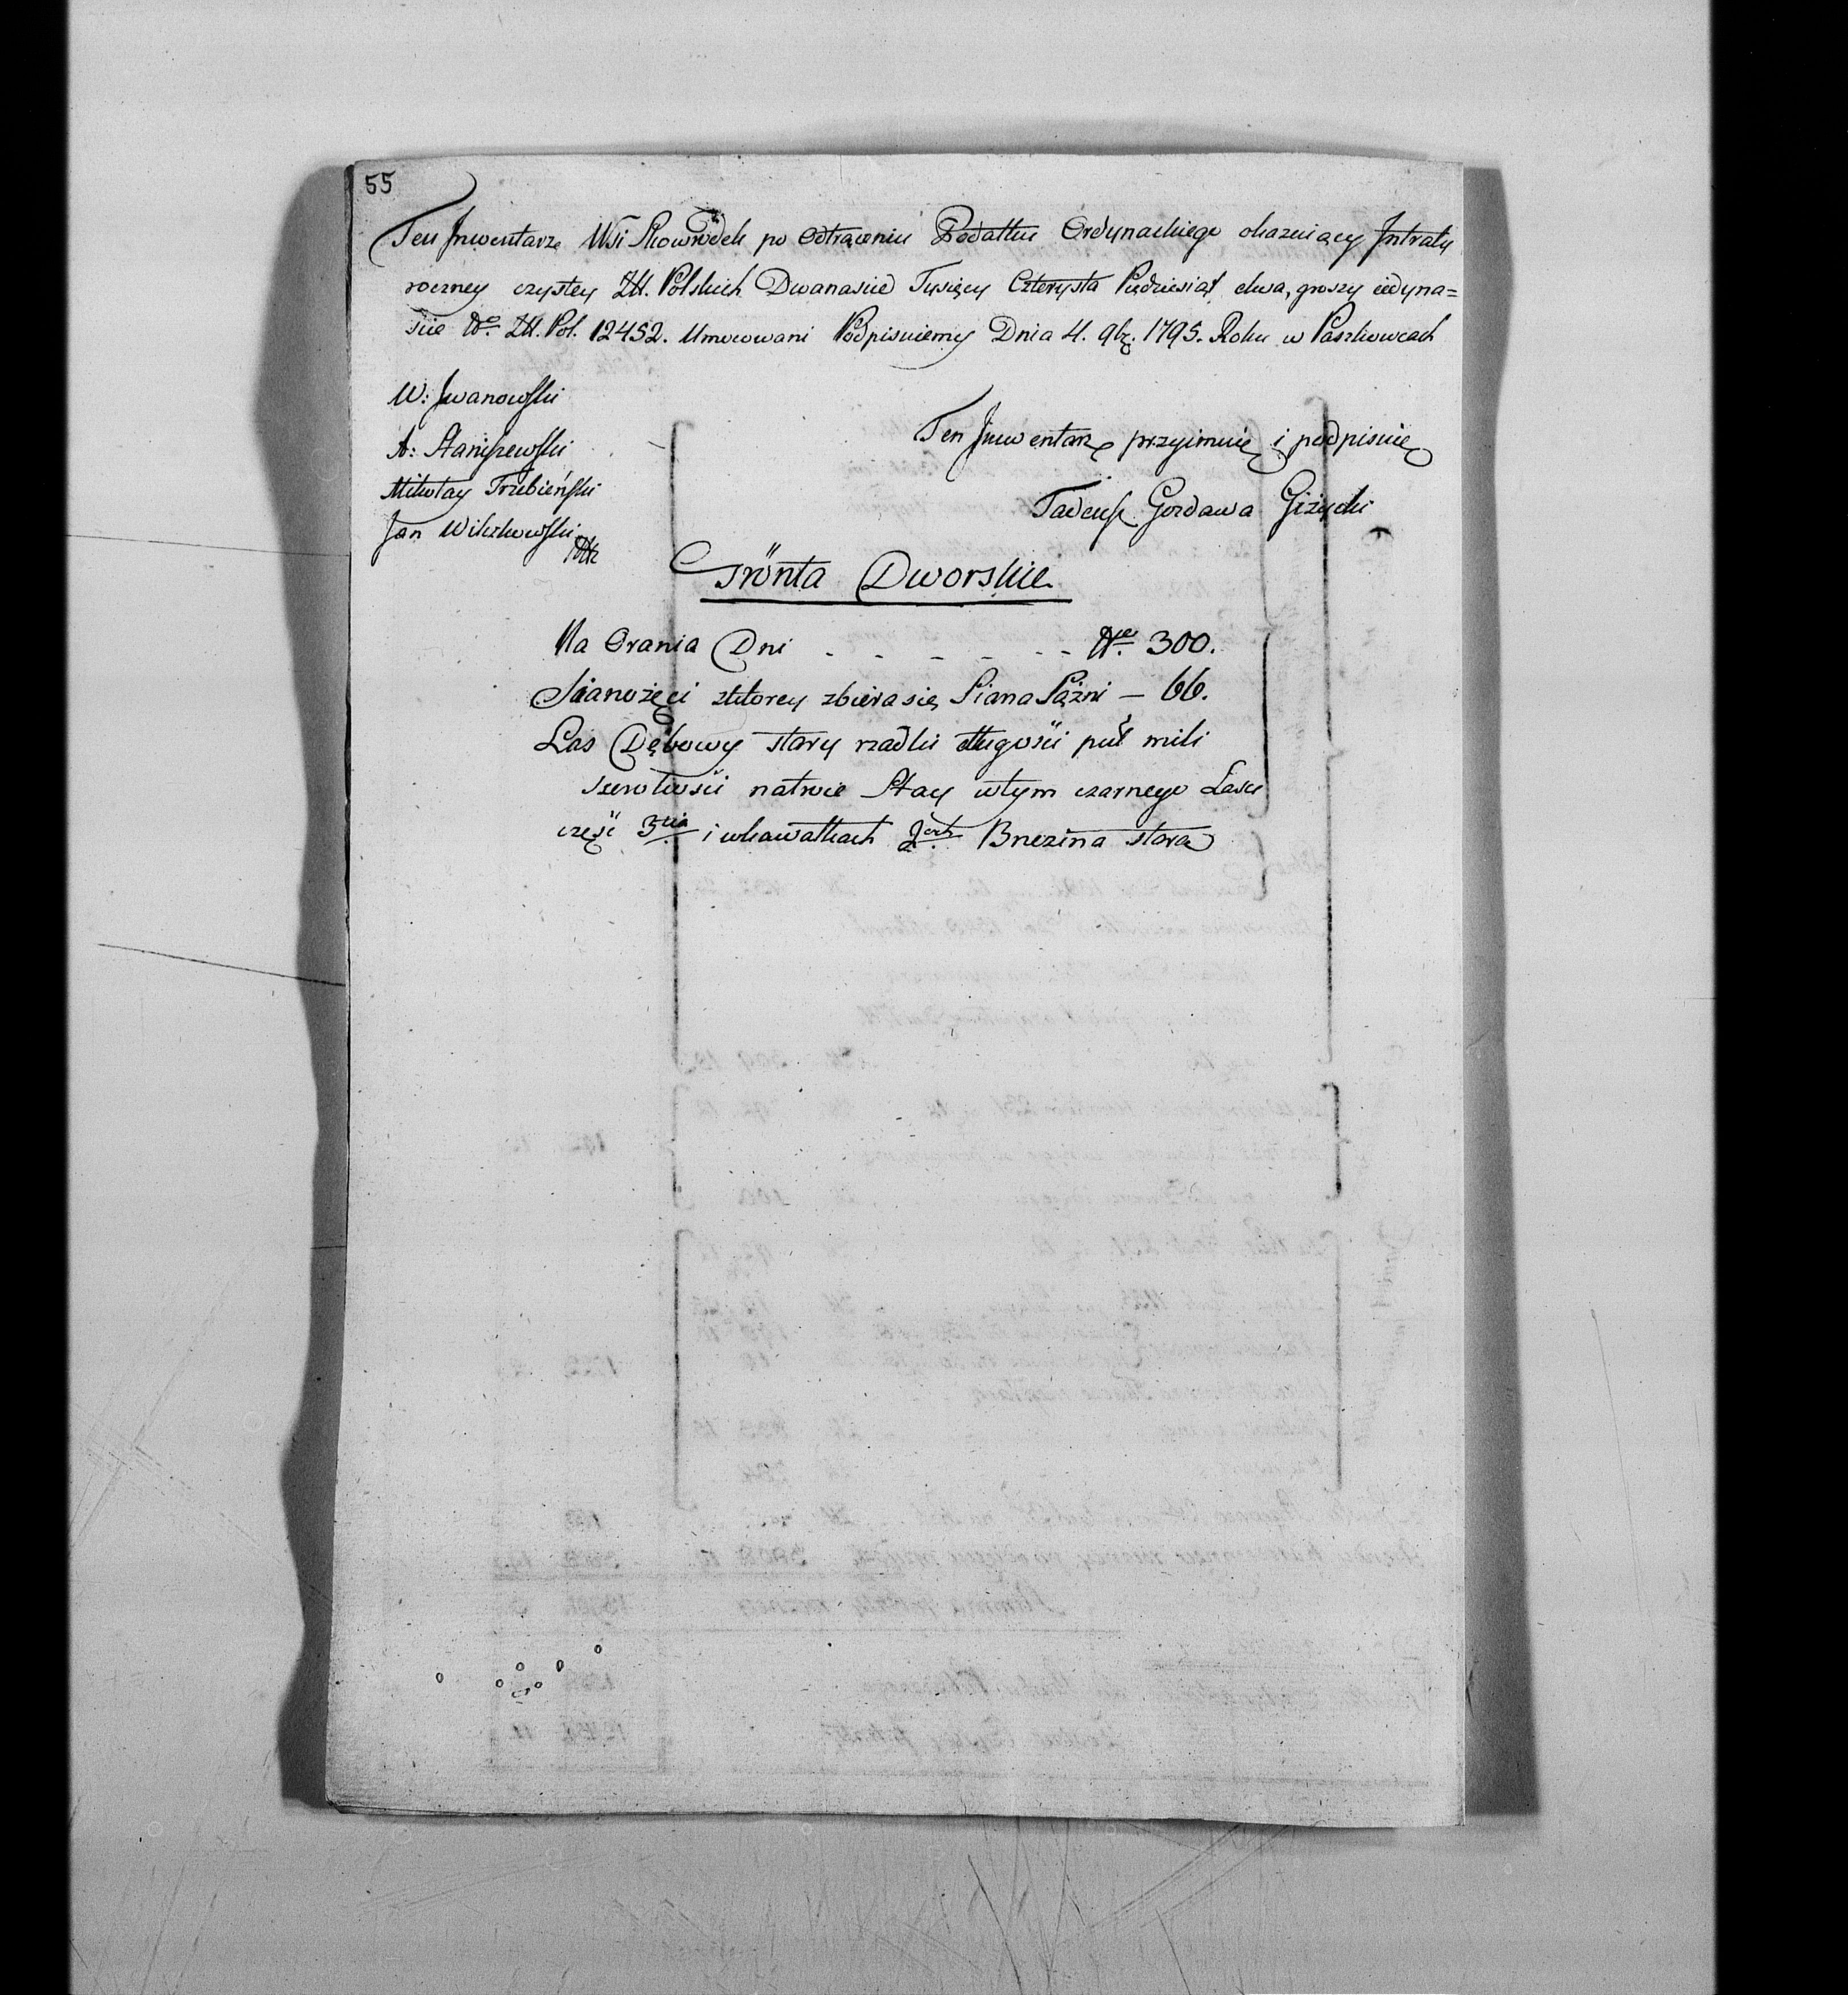 55
Ten Jnwentarz Wsi Skowródek po Odtrąceniu Podatku Ordynackiego okazuiący Jntraty
roczney czystey Zł. Polskich Dwanascie Tysięcy Czterysta Pięcdziesiąt dwa, groszy iedyna=
scie No. Zł. Pol. 12452. Umocowani Podpisuiemy Dnia 4. 9br. 1795. Roku w Paszkowcach
W: Jwanowski
A: Staniszewski
Mikołay Trzebieński
Jan Wilczkowski
Ten Jnwentarz przyimuię i podpisuię
Tadeusz Gozdawa Giżycki
Grónta Dworskie
Na Orania Dni - - - - - - No. 300.
Sianożęci zktorey zbiera się Siana Sążni — 66.
Las Dębowy stary rzadki długości puł mili
szerokości natroie Stay wtym czarnego Lasu
częśc 3cia i wkawałkach Jest Brzezina stara